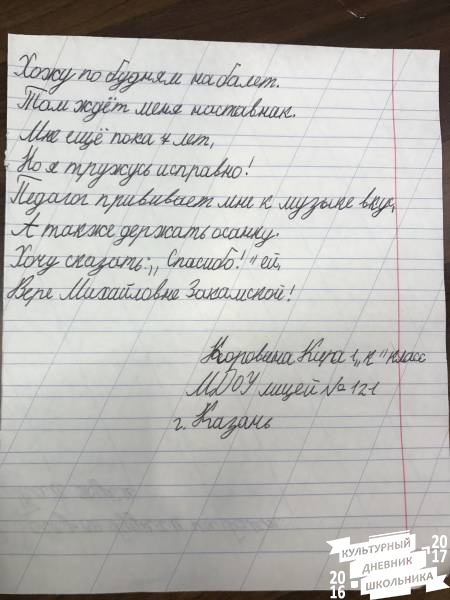 Хожу по будням на балет.
Там ждёт меня наставник.
Мне ещё пока 7 лет,
Но я тружусь исправно!
Педагог прививает мне к музыке вкус,
А также держать осанку.
Хочу сказать: „Спасибо!" ей,
Вере Михайловне Закамской!
Коровина Кира 1„к" класс
МБОУ лицей №121
г. Казань
КУЛЬТУРНЫЙ
ДНЕВНИК
ШКОЛЬНИКА
2016
2017